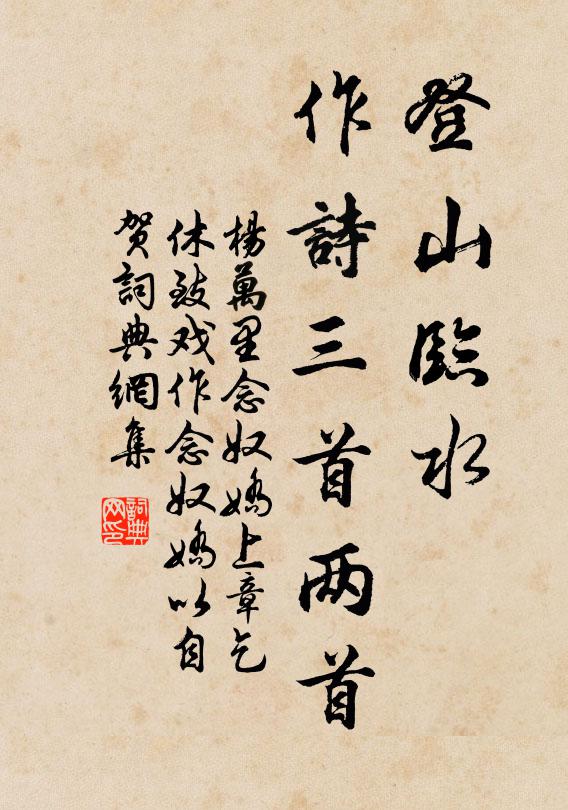 登山臨水
作詩三首两首
楊萬里念奴嬌上章乞
休致戏作念奴嬌以自
贺詞典網集
詞典
网印